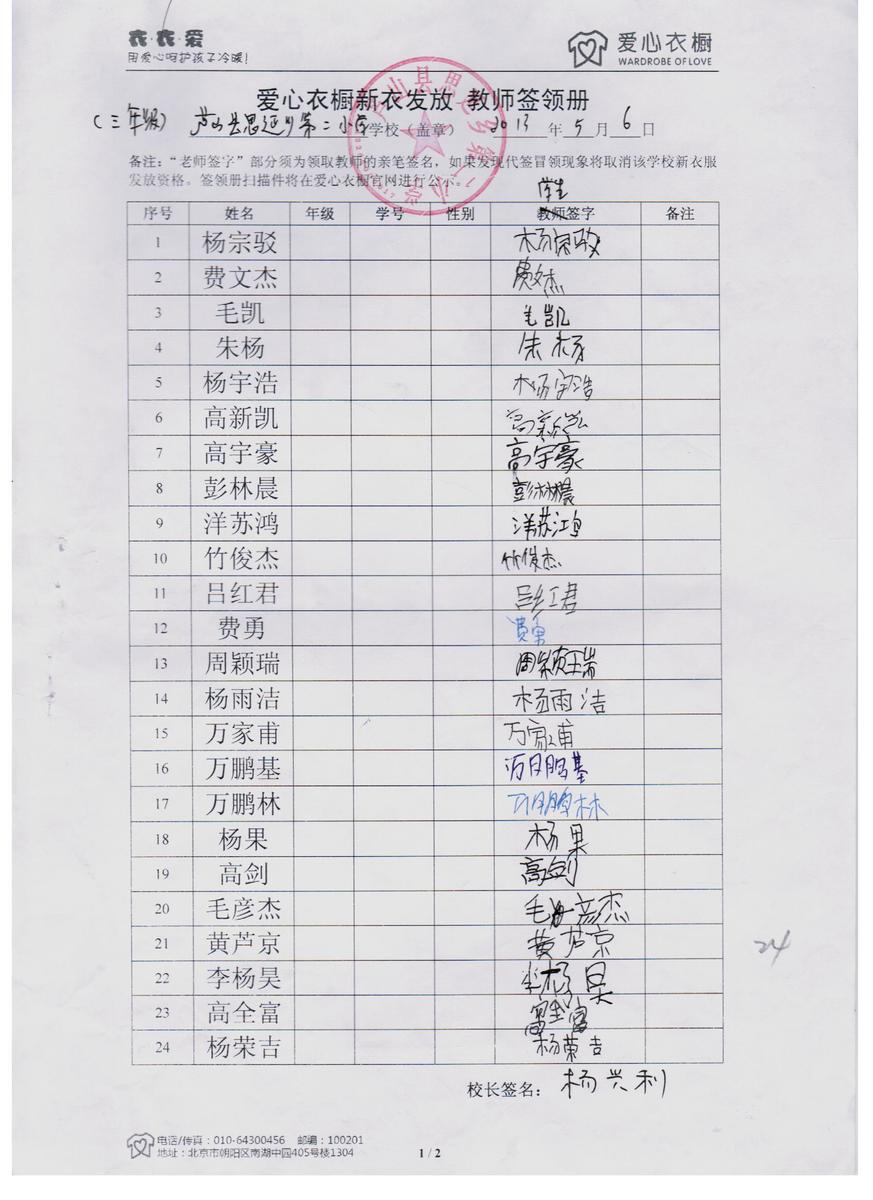 衣·衣·爱
用爱心呵护孩子冷暖!
爱心衣橱
WARDROBE OF LOVE
爱心衣橱新衣发放 教师签领册
(三年级) 芦山县思延乡第二小学 学校(盖章) 2013 年 5 月 6 日
备注:“老师签字”部分须为领取教师的亲笔签名,如果发现代签冒领现象将取消该学校新衣服
发放资格。签领册扫描件将在爱心衣橱官网进行公示。
学生
序号 姓名 年级 学号 性别 教师签字 备注
1 杨宗驳 杨宗驳
2 费文杰 费文杰
3 毛凯 毛凯
4 朱杨 朱杨
5 杨宇浩 杨宇浩
6 高新凯 高新凯
7 高宇豪 高宇豪
8 彭林晨 彭林晨
9 洋苏鸿 洋苏鸿
10 竹俊杰 竹俊杰
11 吕红君 吕红君
12 费勇 费勇
13 周颖瑞 周颖瑞
14 杨雨洁 杨雨洁
15 万家甫 万家甫
16 万鹏基 万鹏基
17 万鹏林 万鹏林
18 杨果 杨果
19 高剑 高剑
20 毛彦杰 毛彦杰
21 黄芦京 黄芦京
22 李杨昊 李杨昊
23 高全富 高全富
24 杨荣吉 杨荣吉
24
校长签名: 杨兴利
电话/传真:010-64300456 邮编:100201
地址:北京市朝阳区南湖中园405号楼1304
1 / 2